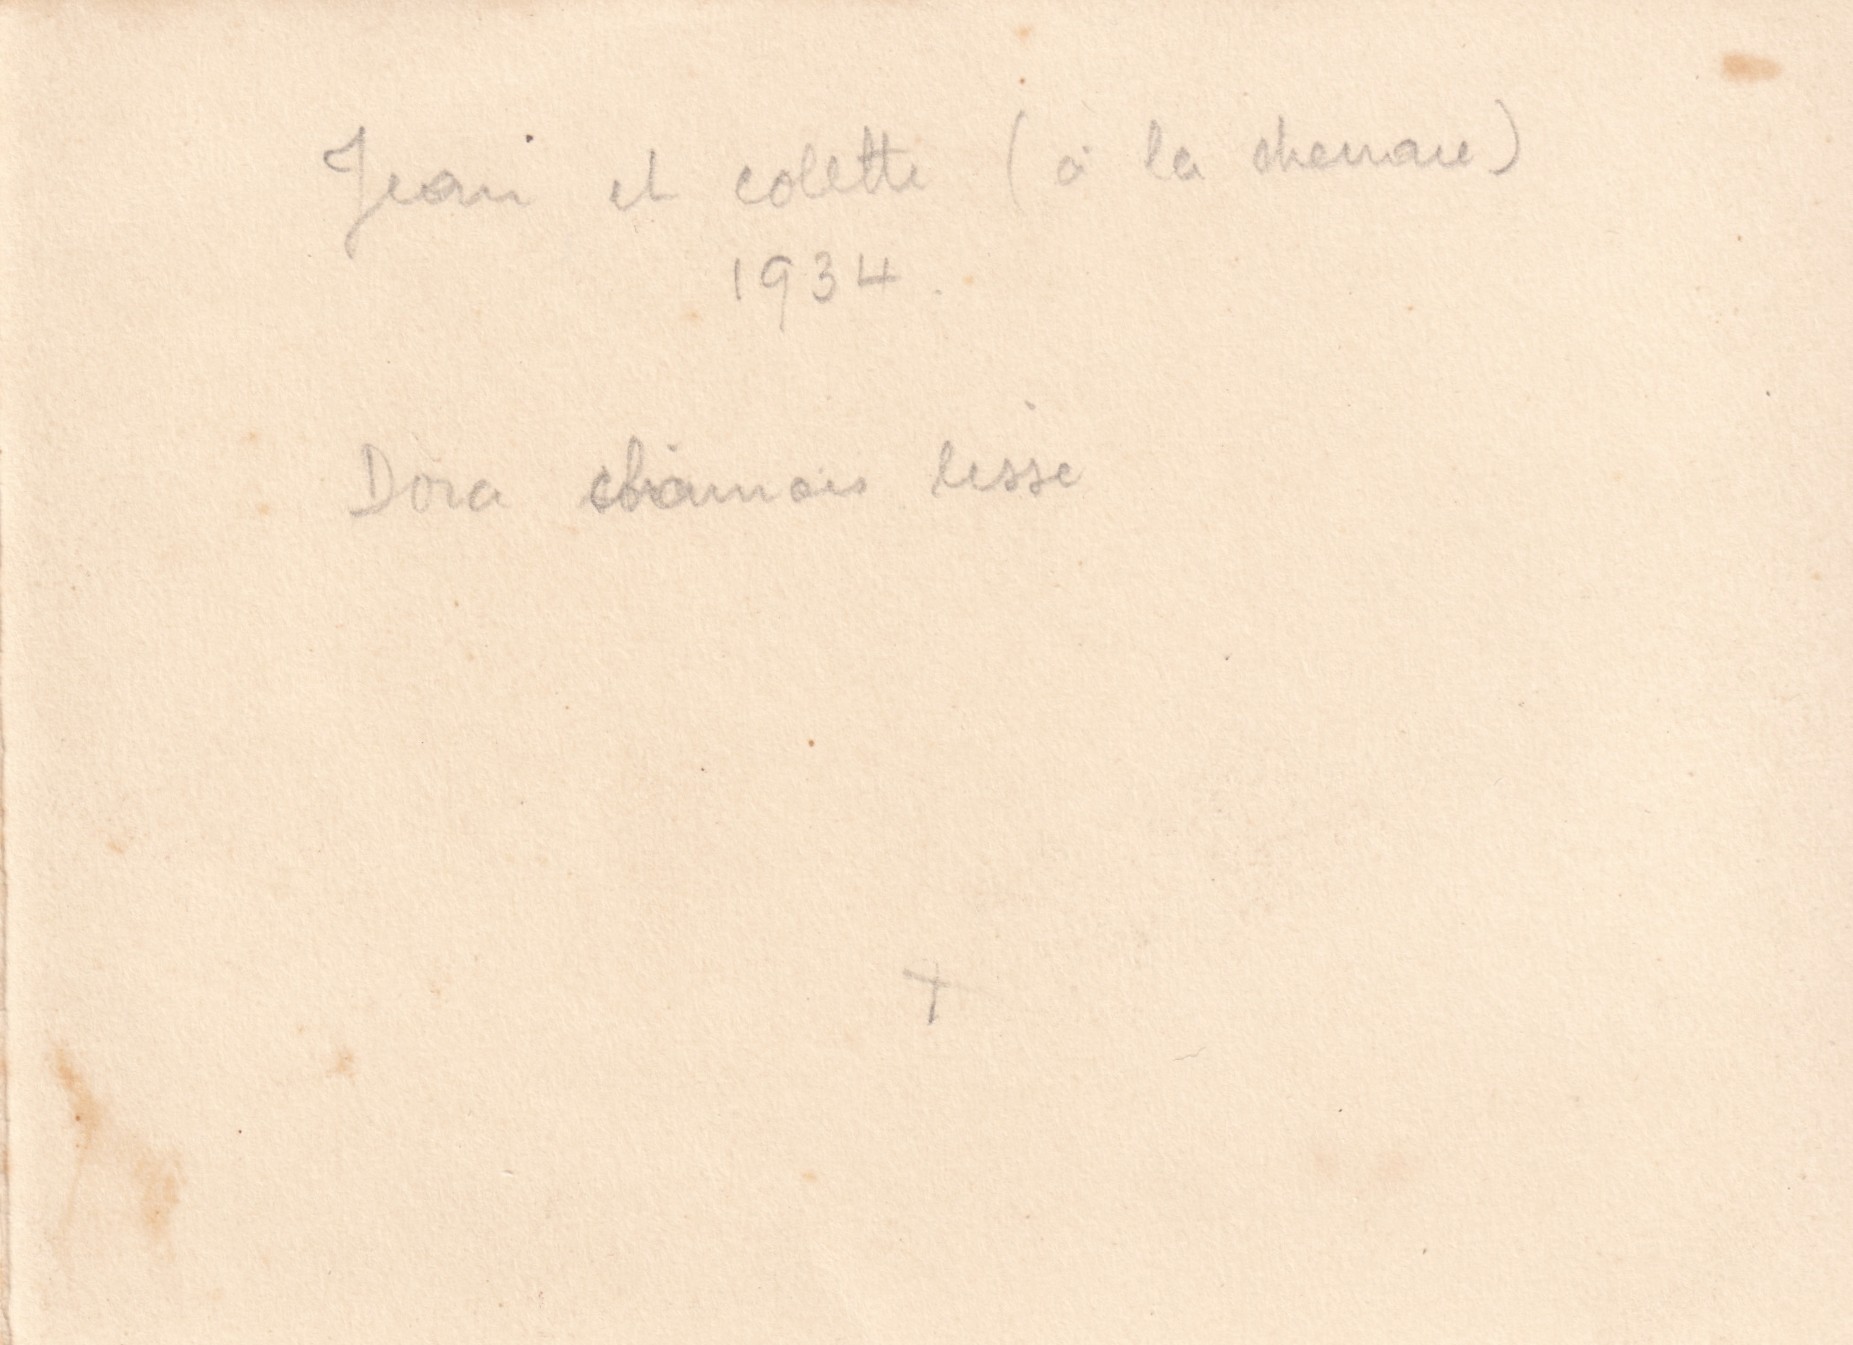 Jean et colette (à la
1934.
Dora chamois lisse